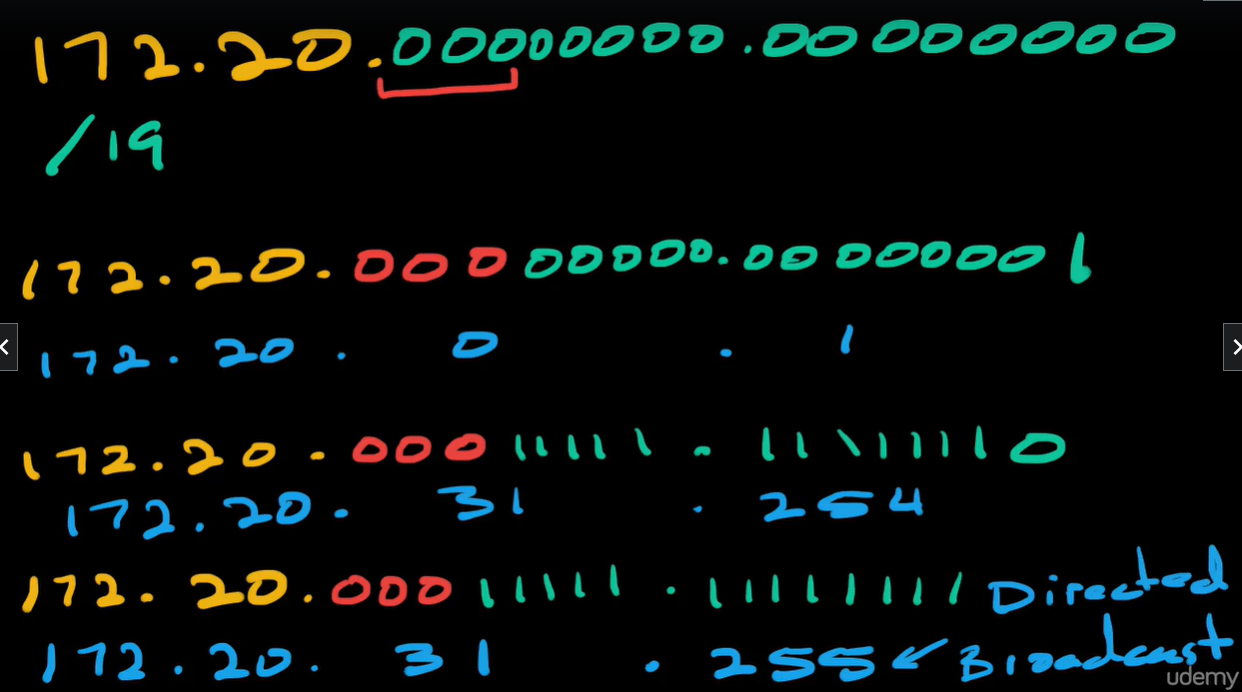 172.20.00000000.00000000
/19
172.20.00000000.00000001
172.20.0.1
172.20.00011111.11111110
172.20.31.254
172.20.00011111.11111111 Directed
172.20.31.255 Broadcast
udemy